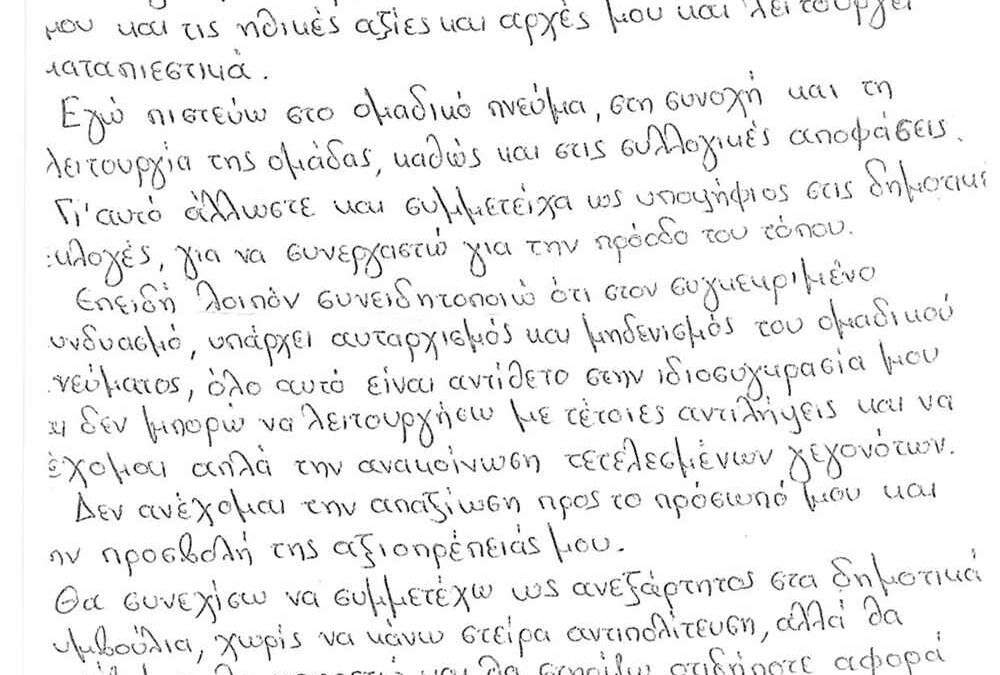 μου και τις ηθικές αξίες και αρχές μου και λειτουργεί
καταπιεστικά.
Εγώ πιστεύω στο ομαδικό πνεύμα, στη συνοχή και τη
λειτουργία της ομάδας, καθώς και στις συλλογικές αποφάσεις.
Γι' αυτό άλλωστε και συμμετείχα ως υποψήφιος στις δημοτικέ
κλογές, για να συνεργαστώ για την πρόοδο του τόπου.
Επειδή λοιπόν συνειδητοποιώ ότι στον συγκεκριμένο
υνδυασμό, υπάρχει αυταρχισμός και μηδενισμός του ομαδικού
νεύματος, όλο αυτό είναι αντίθετο στην ιδιοσυγκρασία μου
ι δεν μπορώ να λειτουργήσω με τέτοιες αντιλήψεις και να
έχομαι απλά την ανακοίνωση τετελεσμένων γεγονότων.
Δεν ανέχομαι την απαξίωση προς το πρόσωπό μου και
ην προσβολή της αξιοπρέπειάς μου.
Θα συνεχίσω να συμμετέχω ως ανεξάρτητος στα δημοτικά
υμβούλια, χωρίς να κάνω στείρα αντιπολίτευση, αλλά θα
και θα στηρίξω οτιδήποτε αφορά